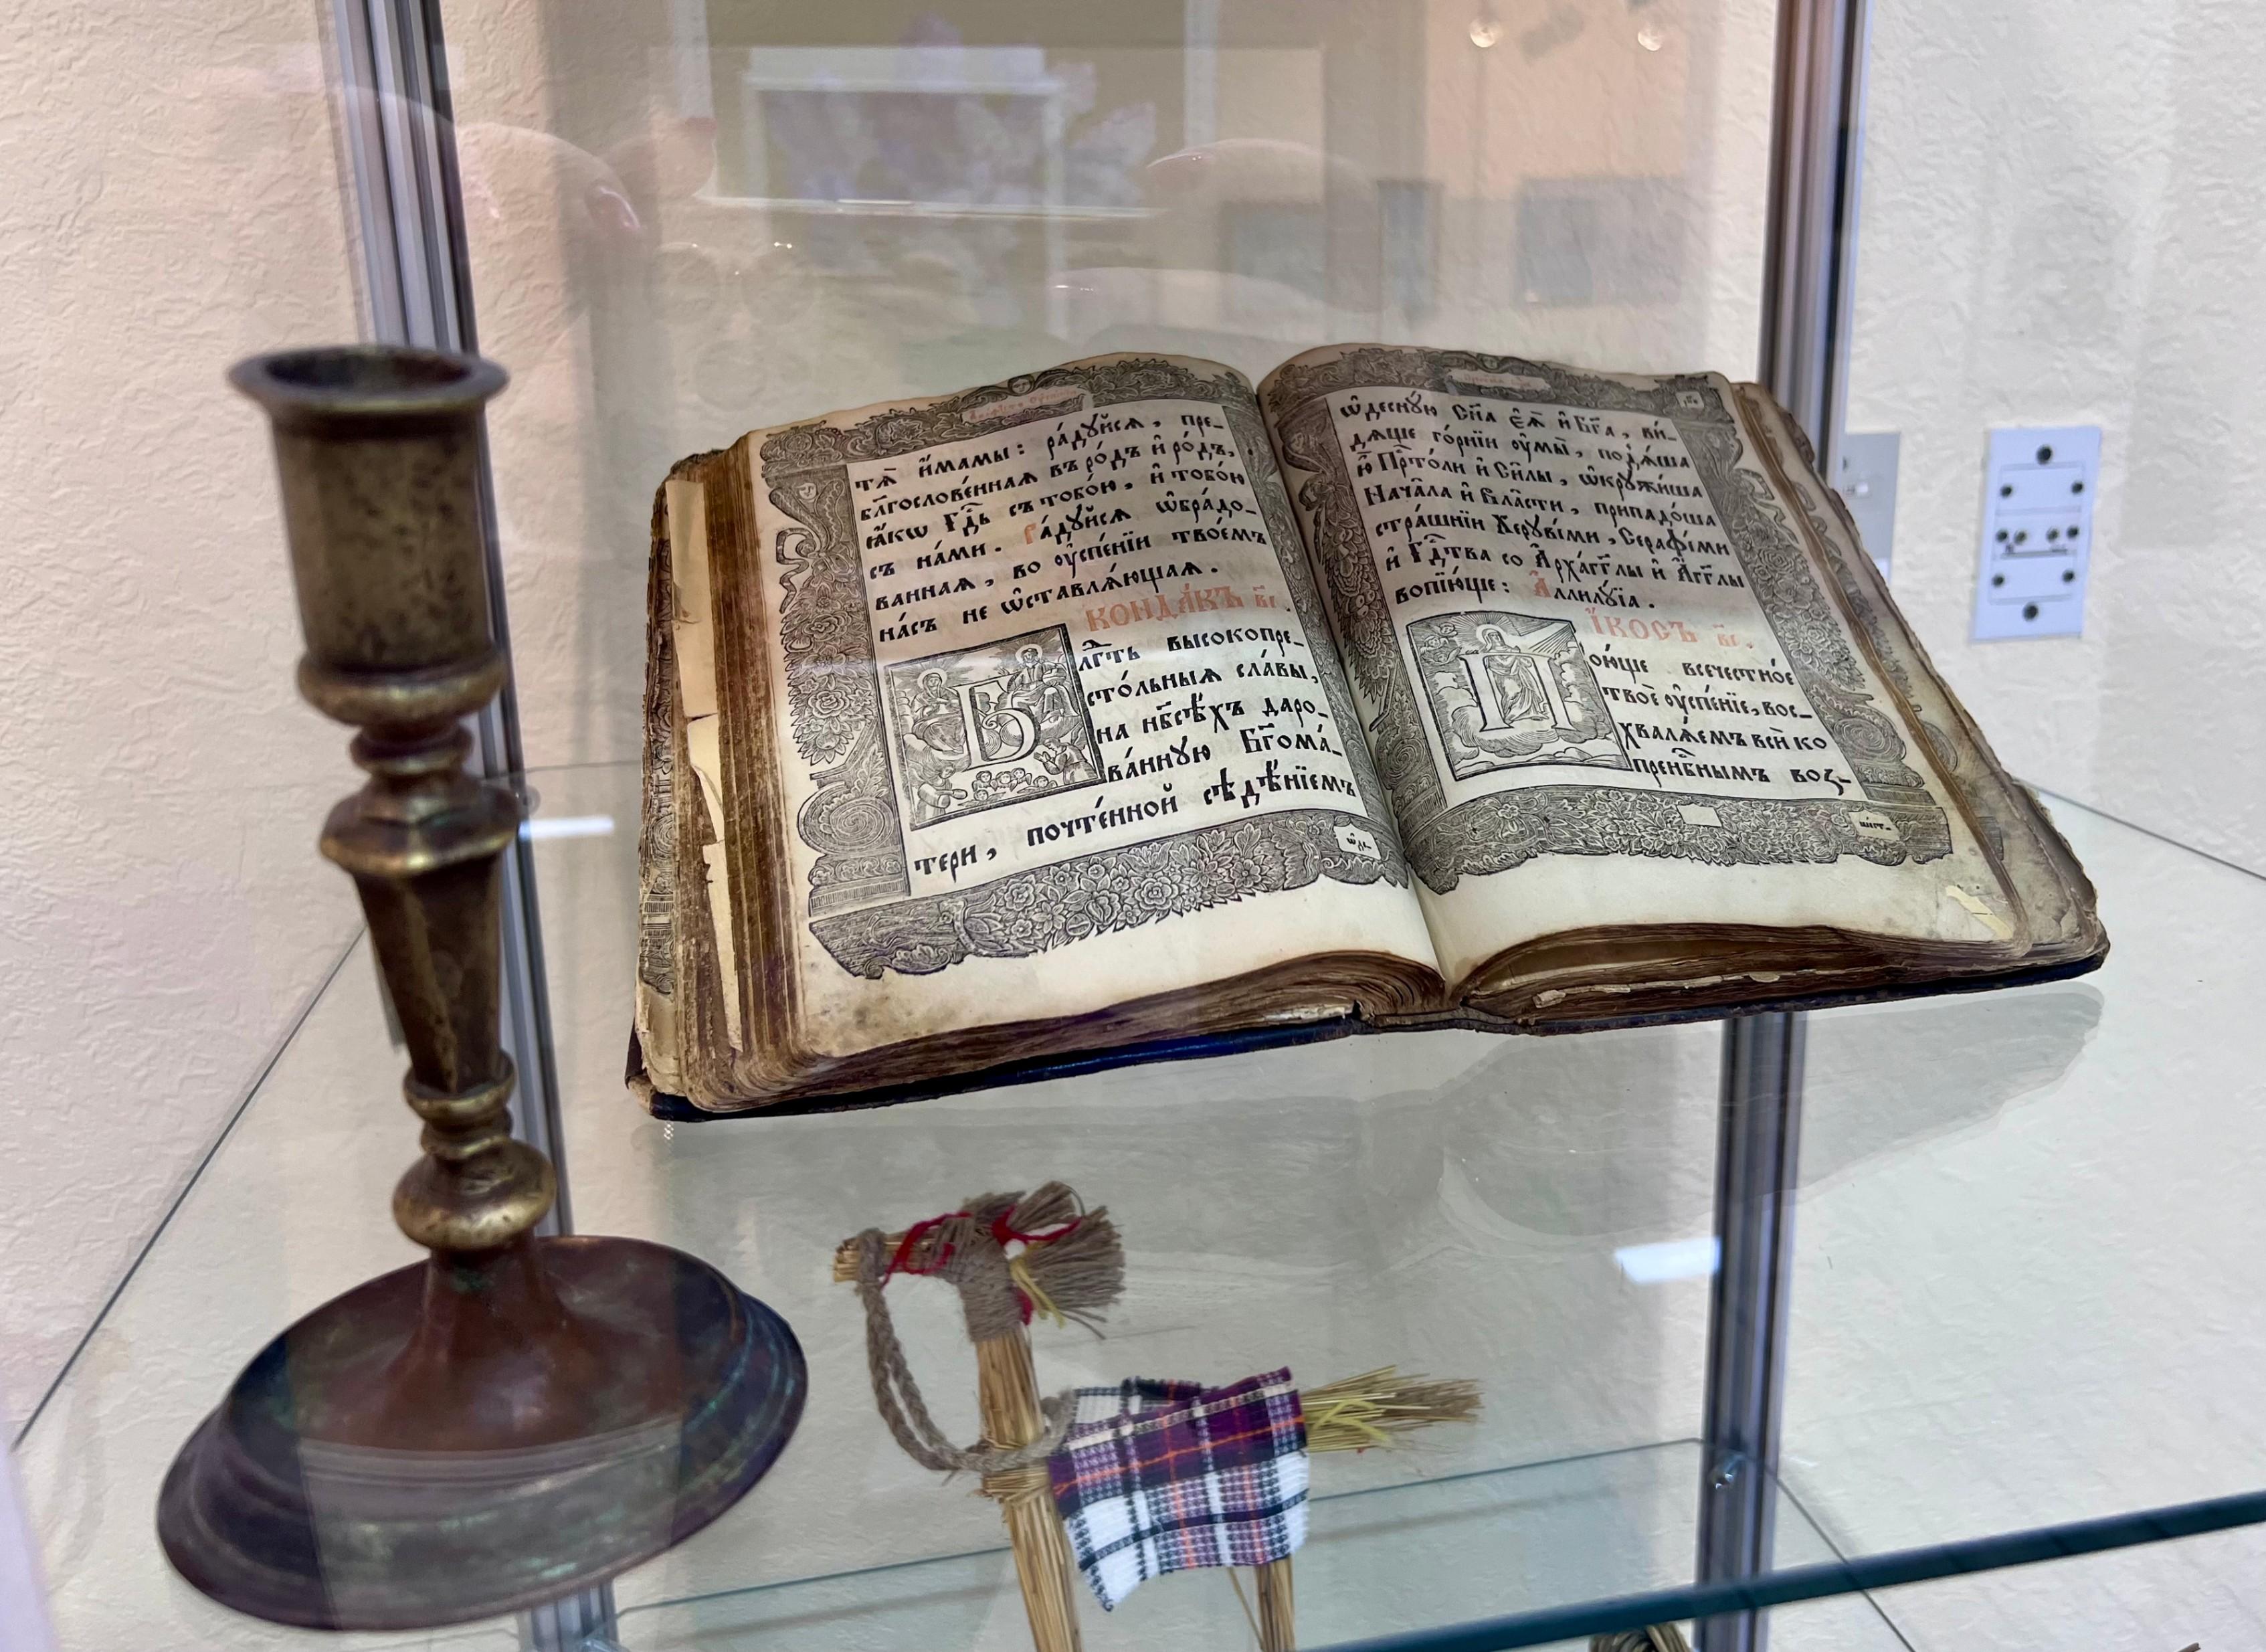 тѧ̀ и҆́мамы: ра́дꙋйсѧ, пре-
блгⷭ҇ослове́ннаѧ въ ро́дъ и҆ ро́дъ,
ꙗ҆́кѡ гдⷭ҇ь съ тобо́ю, и҆ тобо́ю
съ на́ми. Ра́дꙋйсѧ ѡ҆бра́до-
ваннаѧ, во ᲂу҆спе́нїи твое́мъ
на́съ не ѡ҆ставлѧ́ющаѧ.
КОНДА́КЪ в҃і.
Бл҃гть высокопре-
сто́льныѧ сла́вы,
на нб҃сѣ́хъ даро-
ва́ннꙋю Бг҃ома́-
тери, почте́нной сѣдѣ́нїемъ
ѡ҆деснꙋ́ю Сн҃а є҆ѧ̀ и҆ Бг҃а, ви-
дѧще го́рнїи ᲂу҆мы̀, подѧ́ша
и҆ Прⷭ҇то́ли и҆ Си̑лы, ѡ҆крꙋжи́ша
Нача̑ла и҆ Вла̑сти, припадо́ша
стра́шнїи Херꙋві́ми, Серафі́ми
и҆ Гдⷭ҇тва со А҆рха́гг҃лы и҆ А҆́гг҃лы
вопїю́ще: А҆ллилꙋ́їа.
І҆́КОСЪ в҃і.
Пою́ще всечестно́е
твоѐ ᲂу҆спе́нїе, вос-
хвалѧ́емъ всѝ ко
пренбⷭ҇нымъ воз-